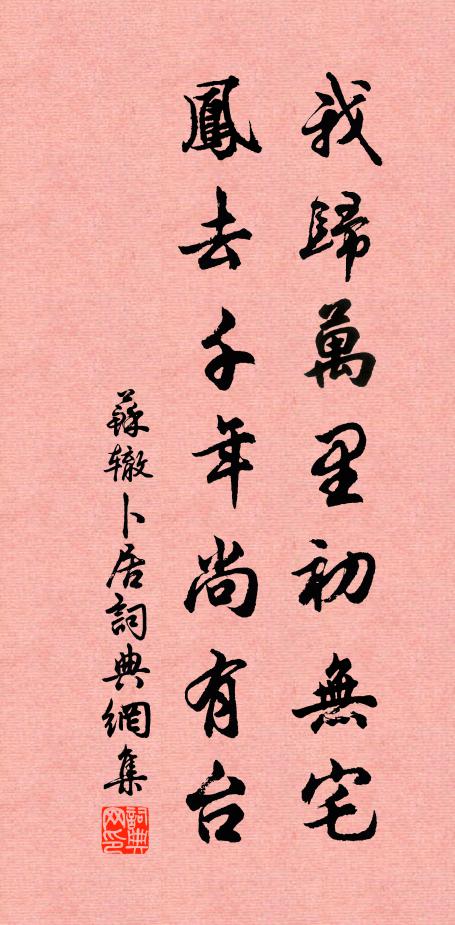 我歸萬里初無宅
鳳去千年尚有台
蘇辙卜居詞典網集
詞典网印